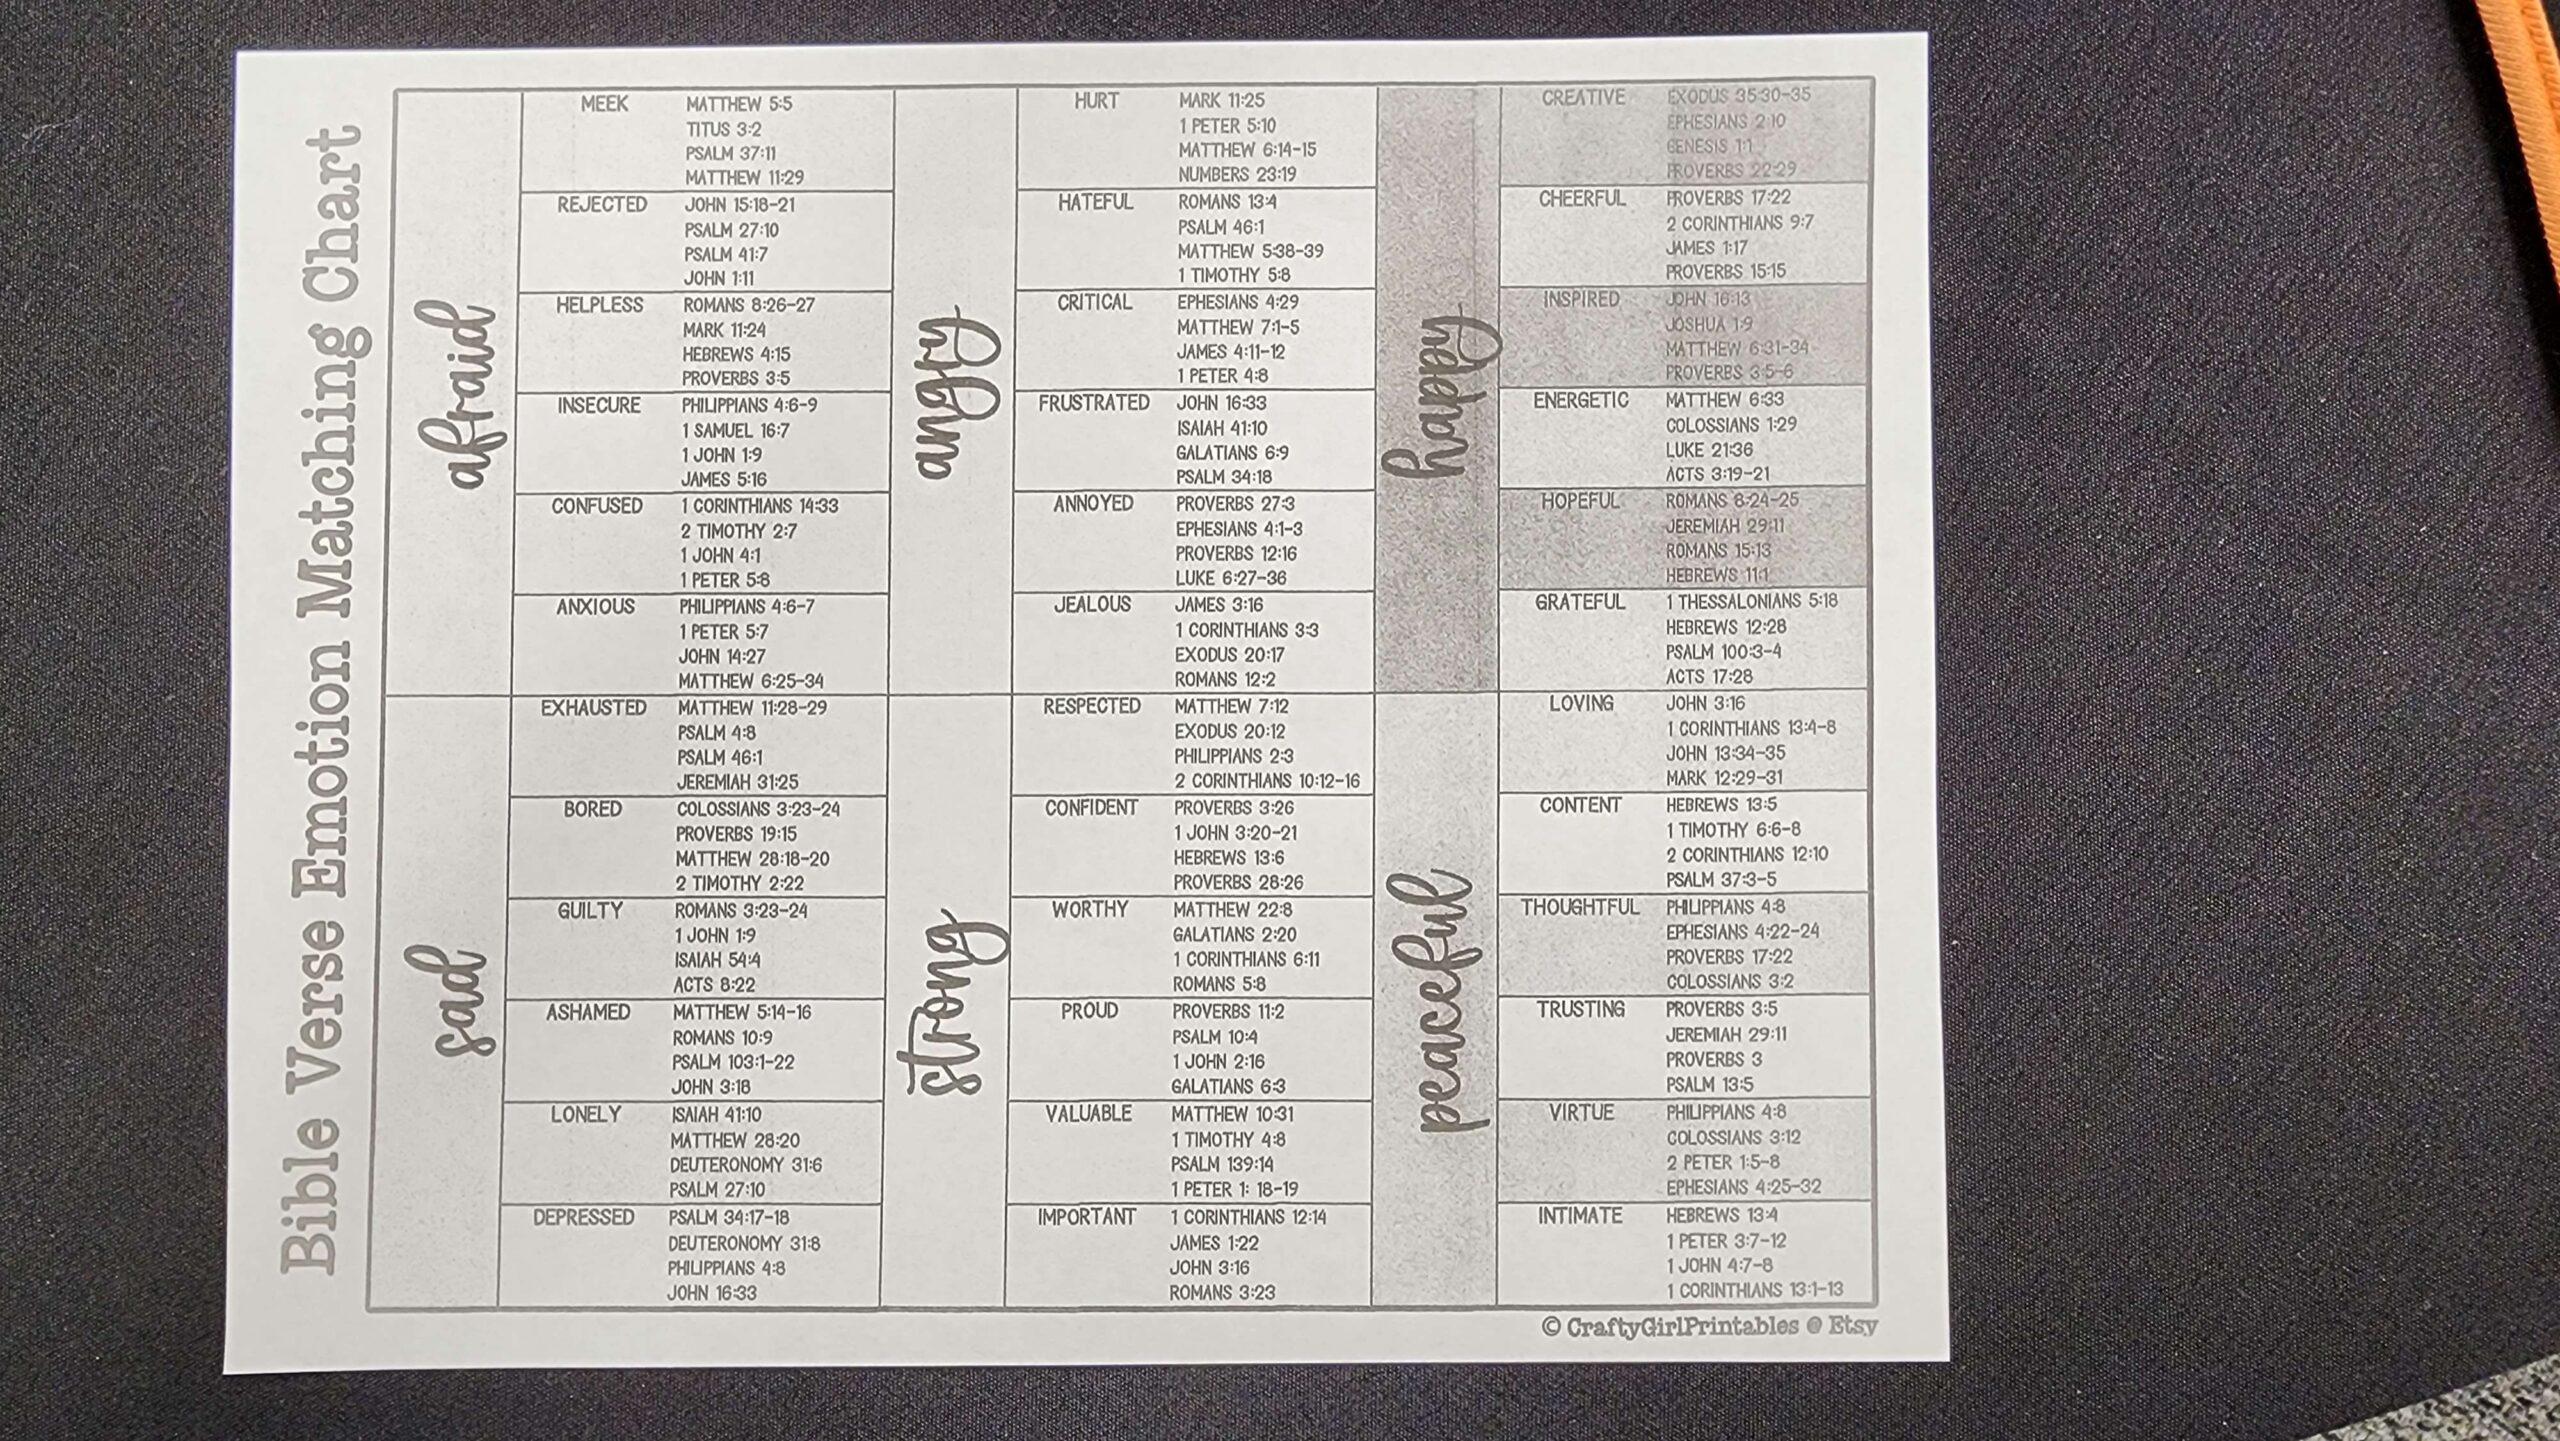 Bible Verse Emotion Matching Chart
afraid
MEEK MATTHEW 5:5
TITUS 3:2
PSALM 37:11
MATTHEW 11:29
REJECTED JOHN 15:18-21
PSALM 27:10
PSALM 41:7
JOHN 1:11
HELPLESS ROMANS 8:26-27
MARK 11:24
HEBREWS 4:15
PROVERBS 3:5
INSECURE PHILIPPIANS 4:6-9
1 SAMUEL 16:7
1 JOHN 1:9
JAMES 5:16
CONFUSED 1 CORINTHIANS 14:33
2 TIMOTHY 2:7
1 JOHN 4:1
1 PETER 5:8
ANXIOUS PHILIPPIANS 4:6-7
1 PETER 5:7
JOHN 14:27
MATTHEW 6:25-34
sad
EXHAUSTED MATTHEW 11:28-29
PSALM 4:8
PSALM 46:1
JEREMIAH 31:25
BORED COLOSSIANS 3:23-24
PROVERBS 19:15
MATTHEW 28:18-20
2 TIMOTHY 2:22
GUILTY ROMANS 3:23-24
1 JOHN 1:9
ISAIAH 54:4
ACTS 8:22
ASHAMED MATTHEW 5:14-16
ROMANS 10:9
PSALM 103:1-22
JOHN 3:18
LONELY ISAIAH 41:10
MATTHEW 28:20
DEUTERONOMY 31:6
PSALM 27:10
DEPRESSED PSALM 34:17-18
DEUTERONOMY 31:8
PHILIPPIANS 4:8
JOHN 16:33
angry
HURT MARK 11:25
1 PETER 5:10
MATTHEW 6:14-15
NUMBERS 23:19
HATEFUL ROMANS 13:4
PSALM 46:1
MATTHEW 5:38-39
1 TIMOTHY 5:8
CRITICAL EPHESIANS 4:29
MATTHEW 7:1-5
JAMES 4:11-12
1 PETER 4:8
FRUSTRATED JOHN 16:33
ISAIAH 41:10
GALATIANS 6:9
PSALM 34:18
ANNOYED PROVERBS 27:3
EPHESIANS 4:1-3
PROVERBS 12:16
LUKE 6:27-36
JEALOUS JAMES 3:16
1 CORINTHIANS 3:3
EXODUS 20:17
ROMANS 12:2
strong
RESPECTED MATTHEW 7:12
EXODUS 20:12
PHILIPPIANS 2:3
2 CORINTHIANS 10:12-16
CONFIDENT PROVERBS 3:26
1 JOHN 3:20-21
HEBREWS 13:6
PROVERBS 28:26
WORTHY MATTHEW 22:8
GALATIANS 2:20
1 CORINTHIANS 6:11
ROMANS 5:8
PROUD PROVERBS 11:2
PSALM 10:4
1 JOHN 2:16
GALATIANS 6:3
VALUABLE MATTHEW 10:31
1 TIMOTHY 4:8
PSALM 139:14
1 PETER 1: 18-19
IMPORTANT 1 CORINTHIANS 12:14
JAMES 1:22
JOHN 3:16
ROMANS 3:23
happy
CREATIVE EXODUS 35:30-35
EPHESIANS 2:10
GENESIS 1:1
PROVERBS 22:29
CHEERFUL PROVERBS 17:22
2 CORINTHIANS 9:7
JAMES 1:17
PROVERBS 15:15
INSPIRED JOHN 16:13
JOSHUA 1:9
MATTHEW 6:31-34
PROVERBS 3:5-6
ENERGETIC MATTHEW 6:33
COLOSSIANS 1:29
LUKE 21:36
ACTS 3:19-21
HOPEFUL ROMANS 8:24-25
JEREMIAH 29:11
ROMANS 15:13
HEBREWS 11:1
GRATEFUL 1 THESSALONIANS 5:18
HEBREWS 12:28
PSALM 100:3-4
ACTS 17:28
peaceful
LOVING JOHN 3:16
1 CORINTHIANS 13:4-8
JOHN 13:34-35
MARK 12:29-31
CONTENT HEBREWS 13:5
1 TIMOTHY 6:6-8
2 CORINTHIANS 12:10
PSALM 37:3-5
THOUGHTFUL PHILIPPIANS 4:8
EPHESIANS 4:22-24
PROVERBS 17:22
COLOSSIANS 3:2
TRUSTING PROVERBS 3:5
JEREMIAH 29:11
PROVERBS 3
PSALM 13:5
VIRTUE PHILIPPIANS 4:8
COLOSSIANS 3:12
2 PETER 1:5-8
EPHESIANS 4:25-32
INTIMATE HEBREWS 13:4
1 PETER 3:7-12
1 JOHN 4:7-8
1 CORINTHIANS 13:1-13
© CraftyGirlPrintables @ Etsy